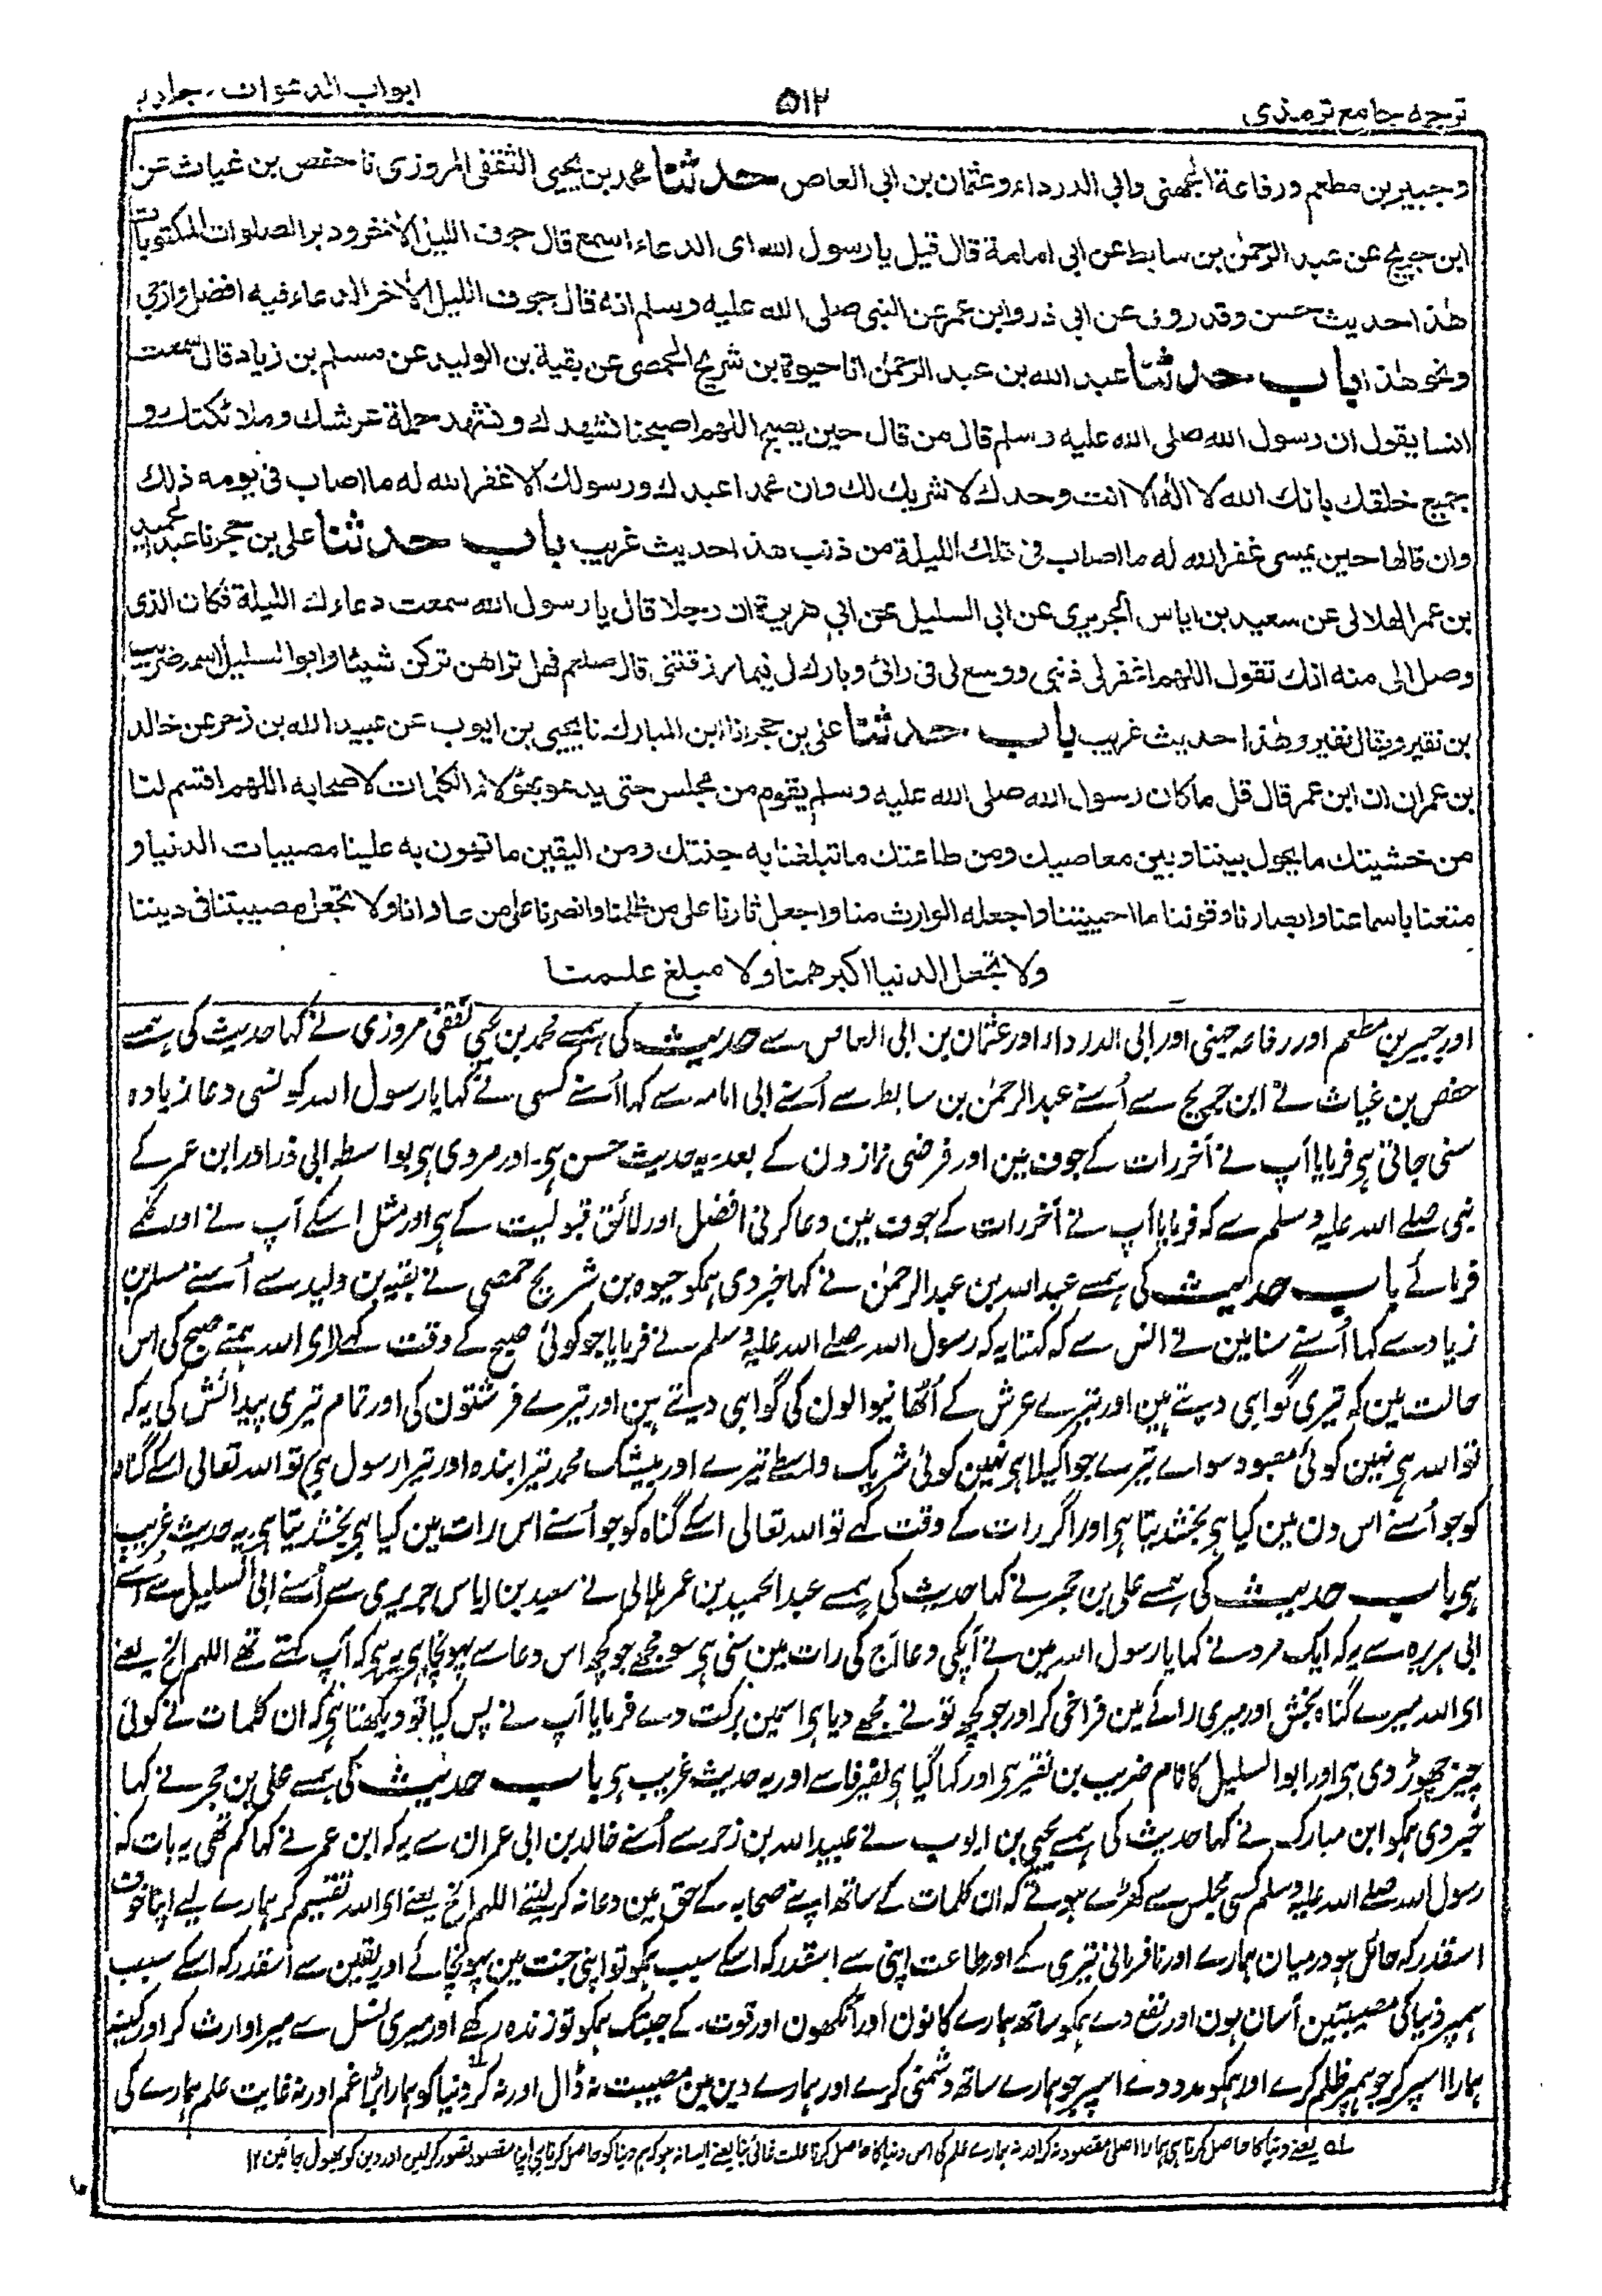 ترجمه جامع ترمذی
۵۱۲
ابواب الدعوات، جلد ۲
وجبیر بن مطعم ورفاعة الجهنی وابی الدرداء وعثمان بن ابی العاص حدثنا محمد بن یحیی الثقفی المروزی نا حفص بن غیاث عن
ابن جریج عن عبد الرحمٰن بن سابط عن ابی امامة قال قیل یا رسول الله ای الدعاء اسمع قال جوف اللیل الاخر ودبر الصلوات المکتوبات
هٰذا حدیث حسن وقد روی عن ابی ذر وابن عمر عن النبی صلی الله علیه وسلم انه قال جوف اللیل الاخر الدعاء فیه افضل وارجی
ونحو هٰذا باب حدثنا عبد الله بن عبد الرحمٰن انا حیوة بن شریح الحمصی عن بقیة بن الولید عن مسلم بن زیاد قال سمعت
انسا یقول ان رسول الله صلی الله علیه وسلم قال من قال حین یصبح اللهم اصبحنا نشهدك ونشهد حملة عرشك وملائکتك و
جمیع خلقك بانك الله لا اله الا انت وحدك لا شریك لك وان محمدا عبدك ورسولك الا غفر الله له ما اصاب فی یومه ذلك
وان قالها حین یمسی غفر الله له ما اصاب فی تلك اللیلة من ذنب هذا حدیث غریب باب حدثنا علی بن حجر نا عبد الحمید
بن عمر الهلالی عن سعید بن ایاس الجریری عن ابی السلیل عن ابی هریرة ان رجلا قال یا رسول الله سمعت دعاءك اللیلة فکان الذی
وصل الی منه انك تقول اللهم اغفر لی ذنبی ووسع لی فی رائی وبارك لی فیما رزقتنی قال صلعم فهل تراهن ترکن شیئا وابو السلیل اسمه ضریب
بن نقیر ویقال نفیر وهٰذا حدیث غریب باب حدثنا علی بن حجر انا ابن المبارك نا یحیی بن ایوب عن عبید الله بن زحر عن خالد
بن عمران ان ابن عمر قال قل ما کان رسول الله صلی الله علیه وسلم یقوم من مجلس حتی یدعو بهؤلاء الکلمات لاصحابه اللهم اقسم لنا
من خشیتك ما یحول بیننا وبین معاصیك ومن طاعتك ما تبلغنا به جنتك ومن الیقین ما تهون به علینا مصیبات الدنیا و
متعنا باسماعنا وابصارنا وقوتنا ما احییتنا واجعله الوارث منا واجعل ثارنا علی من ظلمنا وانصرنا علی من عادانا ولا تجعل مصیبتنا فی دیننا
ولا تجعل الدنیا اکبر همنا ولا مبلغ علمنا
اور جبیر بن مطعم اور رفاعہ جہنی اور ابی الدرداء اور عثمان بن ابی العاص سے حدیث کی ہمسے محمد بن یحیی ثقفی مروزی نے کہا حدیث کی ہمسے
حفص بن غیاث نے ابن جریج سے اُسنے عبد الرحمٰن بن سابط سے اُسنے ابی امامہ سے کہا اُسنے کسی نے کہا یا رسول اللہ کونسی دعا زیادہ
سنی جاتی ہی فرمایا آپ نے آخر رات کے جوف مین اور فرضی نمازون کے بعد۔ یہ حدیث حسن ہی۔ اور مروی ہی بواسطہ ابی ذر اور ابن عمر کے
نبی صلے اللہ علیہ وسلم سے کہ فرمایا آپ نے آخر رات کے جوف مین دعا کرنی افضل اور لائق قبولیت کے ہی اور مثل اسکے آپ نے اور کلمے
فرمائے باب حدیث کی ہمسے عبد اللہ بن عبد الرحمٰن نے کہا خبر دی ہمکو حیوہ بن شریح حمصی نے بقیہ بن ولید سے اُسنے مسلم بن
زیاد سے کہا اُسنے سنا مین نے انس سے کہ کہتا یہ کہ رسول اللہ صلے اللہ علیہ وسلم نے فرمایا جو کوئی صبح کے وقت کہے لا ای اللہ ہمنے صبح کی اس
حالت مین کہ تیری گواہی دیتے ہین اور تیرے عرش کے اُٹھانیوالون کی گواہی دیتے ہین اور تیرے فرشتون کی اور تمام تیری پیدائش کی یہ کہ
تو اللہ ہی نہین کوئی معبود سواے تیرے جو اکیلا ہی نہین کوئی شریک واسطے تیرے اور بیشک محمد تیرا بندہ اور تیرا رسول ہی تو اللہ تعالی اسکے گناہ
کو جو اُسنے اس دن مین کیا ہی بخشدیتا ہی اور اگر رات کے وقت کہے تو اللہ تعالی اسکے گناہ کو جو اُسنے اس رات مین کیا ہی بخشدیتا ہی یہ حدیث غریب
ہی باب حدیث کی ہمسے علی بن حجر نے کہا حدیث کی ہمسے عبد الحمید بن عمر ہلالی نے سعید بن ایاس جریری سے اُسنے ابی السلیل سے اُسنے
ابی ہریرہ سے یہ کہ ایک مرد نے کہا یا رسول اللہ مین نے آپکی دعا آج کی رات مین سنی ہی سو مجھے جو کچھ اس دعا سے پہونچا ہی یہ ہی کہ آپ کہتے تھے اللهم الخ یعنے
ای اللہ میرے گناہ بخش اور میری رائے مین فراخی کر اور جو کچھ تو نے مجھے دیا ہی اسمین برکت دے فرمایا آپ نے پس کیا تو دیکھتا ہی کہ ان کلمات نے کوئی
چیز چھوڑ دی ہی اور ابو السلیل کا نام ضریب بن نقیر ہی اور کہا گیا ہی نفیر فا سے اور یہ حدیث غریب ہی باب حدیث کی ہمسے علی بن حجر نے کہا
خبر دی ہمکو ابن مبارک نے کہا حدیث کی ہمسے یحیی بن ایوب نے عبید اللہ بن زحر سے اُسنے خالد بن ابی عمران سے یہ کہ ابن عمر نے کہا کم تھی یہ بات کہ
رسول اللہ صلے اللہ علیہ وسلم کسی مجلس سے کھڑے ہوتے کہ ان کلمات کے ساتھ اپنے صحابہ کے حق مین دعا نہ کرلیتے اللهم الخ یعنے ای اللہ تقسیم کر ہمارے لیے اپنا خوف
اسقدر کہ حائل ہو درمیان ہمارے اور نافرمانی تیری کے اور طاعت اپنی سے اسقدر کہ اسکے سبب ہمکو تو اپنی جنت مین پہونچائے اور یقین سے اسقدر کہ اسکے سبب
ہمپر دنیا کی مصیبتین آسان ہون اور نفع دے ہمکو ساتھ ہمارے کانون اور آنکھون اور قوت کے جبتک ہمکو تو زندہ رکھے اور میری نسل سے میرا وارث کر اور کینہ
ہمارا اسپر کر جو ہمپر ظلم کرے اور ہمکو مدد دے اسپر جو ہمارے ساتھ دشمنی کرے اور ہمارے دین مین مصیبت نہ ڈال اور نہ کر دنیا کو ہمارا بڑا غم اور نہ غایت علم ہمارے کی
لہ یعنے دنیا کا حاصل کرنا ہی ہمارا اصلی مقصود نہ کر اور نہ ہمارے علم کی اس دنیا کا حاصل کرنا علت غائی بنا یعنے ایسا نہ ہو کہ ہم دنیا کو حاصل کرنا ہی اپنا مقصود تصور کرلین اور دین کو بھول جائین ۱۲